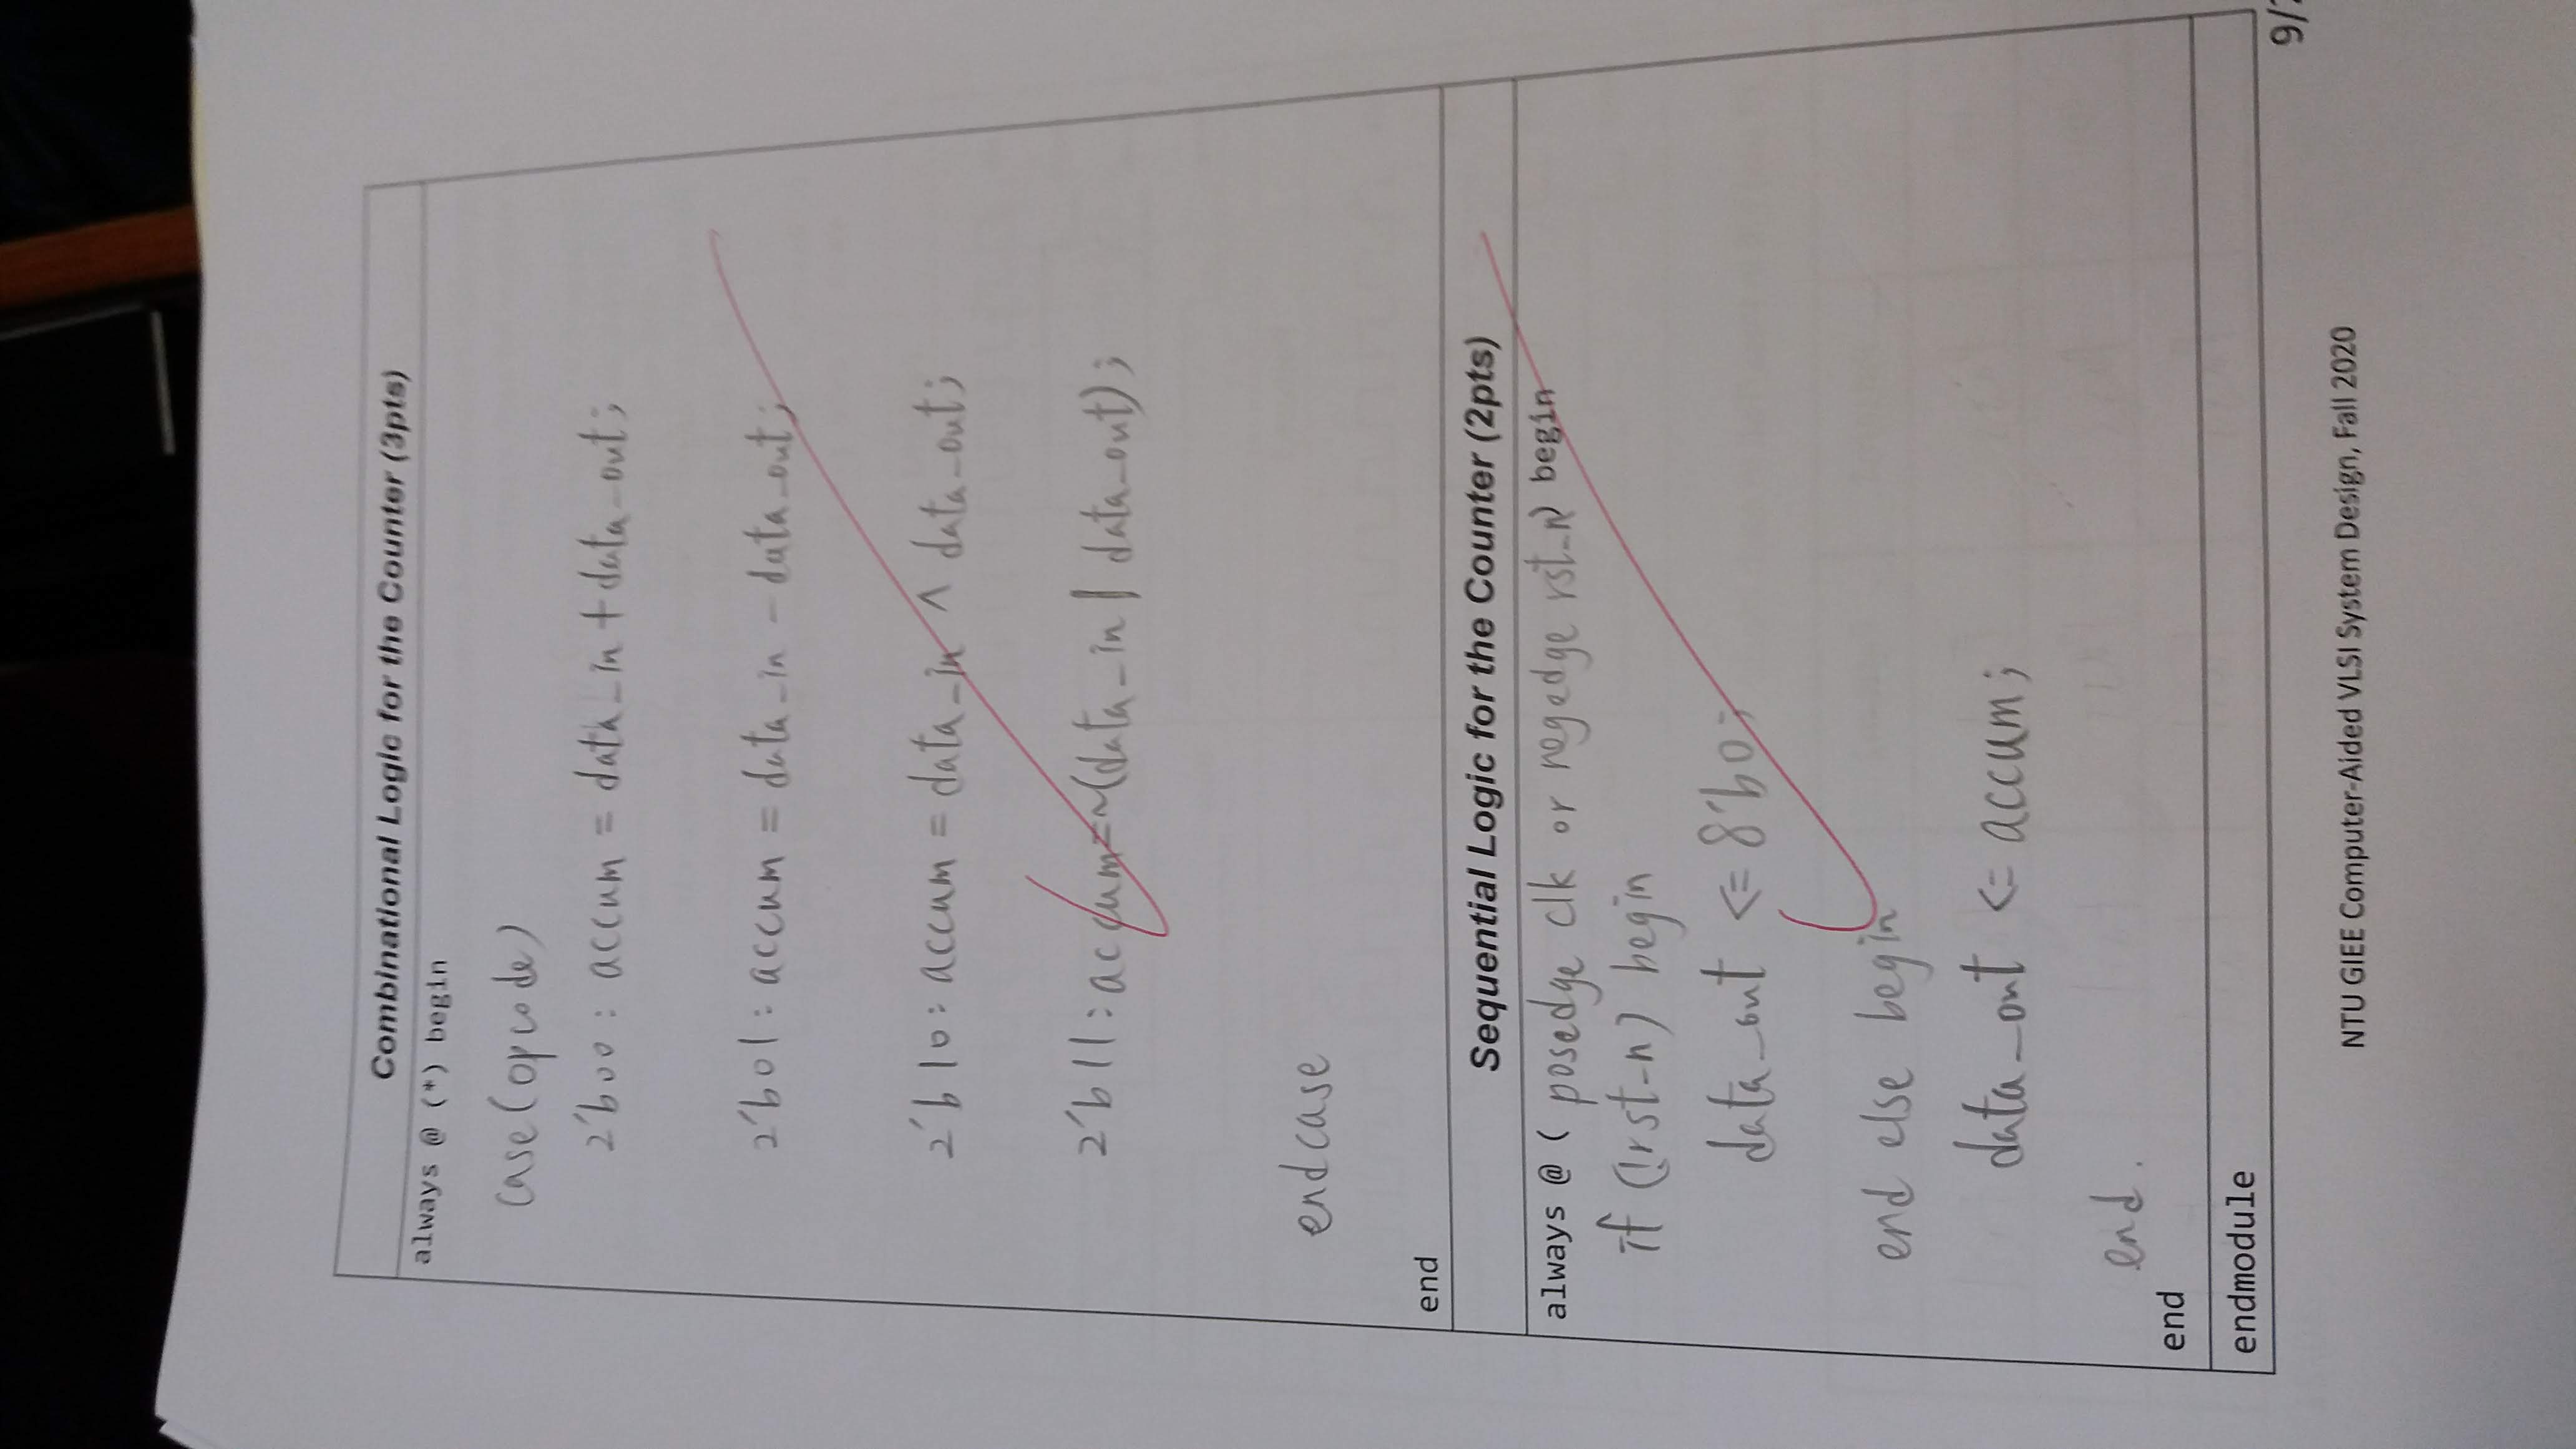 Combinational Logic for the Counter (3pts)
always @ (*) begin
case(opcode)
2'b00: accum = data_in + data_out;
2'b01: accum = data_in - data_out;
2'b10: accum = data_in ^ data_out;
2'b11: accum=~(data_in | data_out);
endcase
end
Sequential Logic for the Counter (2pts)
always @ ( posedge clk or negedge rst_n) begin
if (!rst_n) begin
data_out <= 8'b0;
end else begin
data_out <= accum;
end.
end
endmodule
9/
NTU GIEE Computer-Aided VLSI System Design, Fall 2020